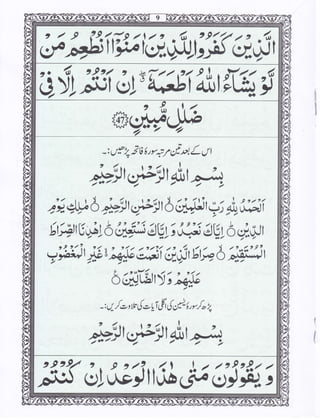 9
الَّذِیْنَ كَفَرُوْا لِلَّذِیْنَ اٰمَنُوْۤا اَنُطْعِمُ مَنْ
لَّوْ یَشَآءُ اللّٰهُ اَطْعَمَهٗۤ ۖ اِنْ اَنْتُمْ اِلَّا فِیْ
ضَلٰلٍ مُّبِیْنٍ ﴿۴۷﴾
اس کے بعد تین مرتبہ سورۂ فاتحہ پڑھیں:۔
بِسْمِ اللّٰهِ الرَّحْمٰنِ الرَّحِیْمِ
اَلْحَمْدُ لِلّٰهِ رَبِّ الْعٰلَمِیْنَ ۝ الرَّحْمٰنِ الرَّحِیْمِ ۝ مٰلِكِ یَوْمِ
الدِّیْنِ ۝ اِیَّاكَ نَعْبُدُ وَ اِیَّاكَ نَسْتَعِیْنُ ۝ اِهْدِنَا الصِّرَاطَ
الْمُسْتَقِیْمَ ۝ صِرَاطَ الَّذِیْنَ اَنْعَمْتَ عَلَیْهِمْ ۙ غَیْرِ الْمَغْضُوْبِ
عَلَیْهِمْ وَ لَا الضَّآلِّیْنَ ۝
پڑھ کر سورۂ یٰسین کی اگلی آیات کی تلاوت کریں:۔
بِسْمِ اللّٰهِ الرَّحْمٰنِ الرَّحِیْمِ
وَ یَقُوْلُوْنَ مَتٰی هٰذَا الْوَعْدُ اِنْ كُنْتُمْ